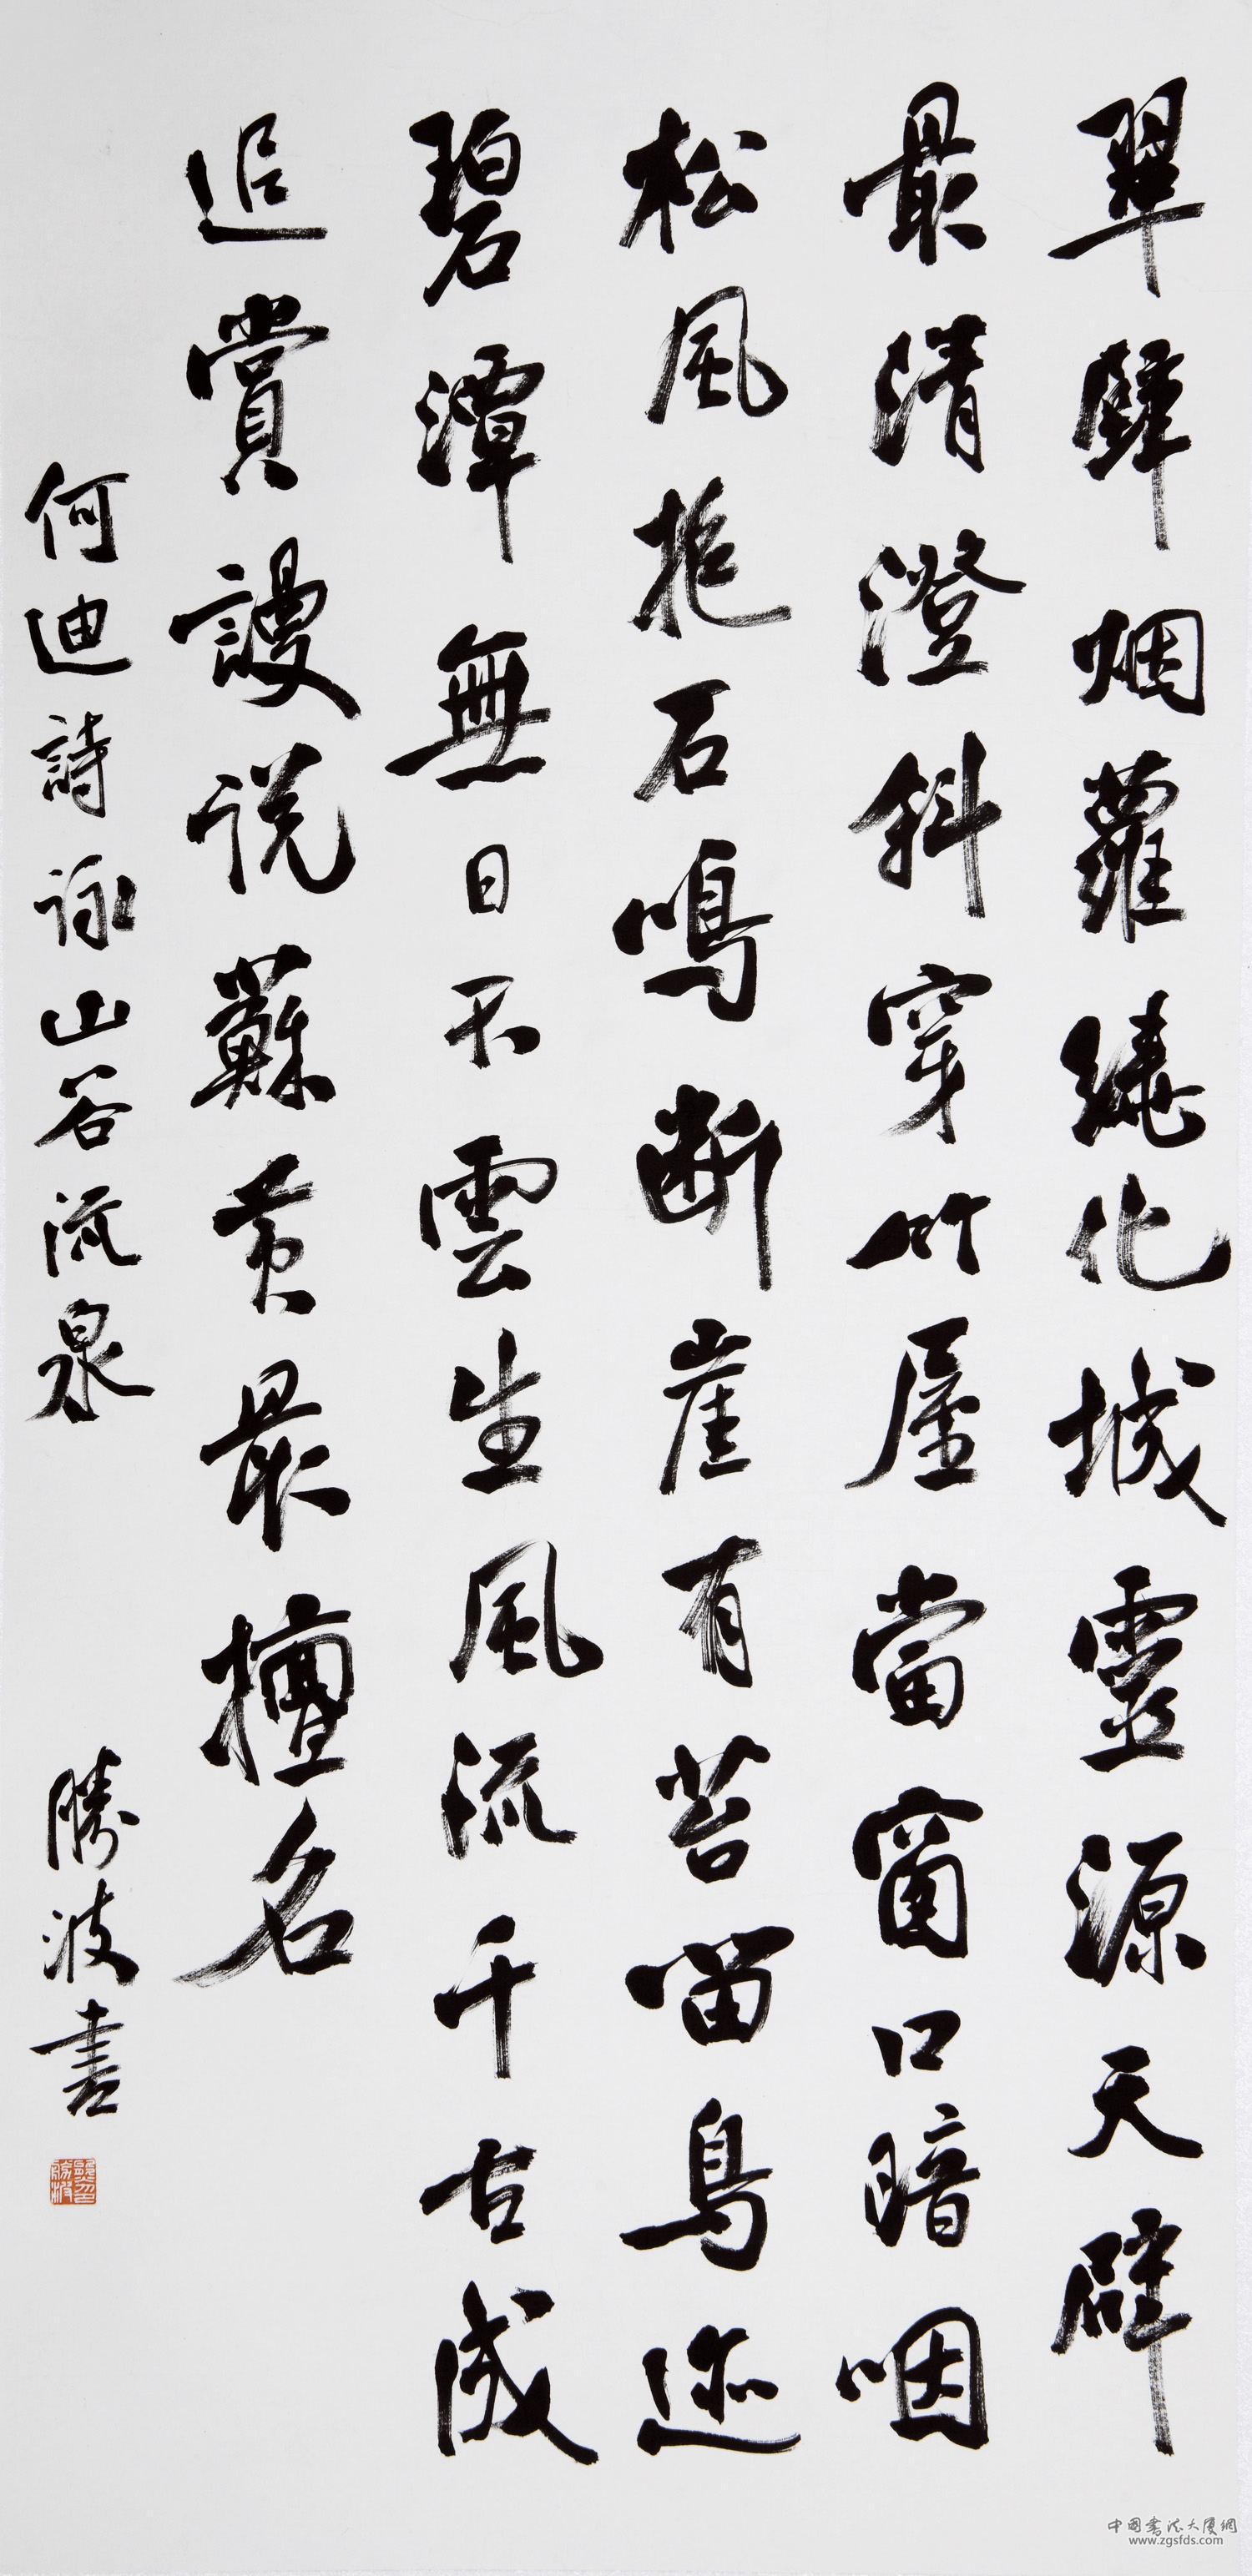 翠壁烟蘿繞化城靈源天闢
最清澄斜穿竹屋當窗口暗咽
松風抱石鳴斷崖有苔留鳥迹
碧潭無日不雲生風流千古成
追賞謾说蘇黄最擅名
何迪詩詠山谷流泉
勝波書
中国书法大厦网
www.zgsfds.com